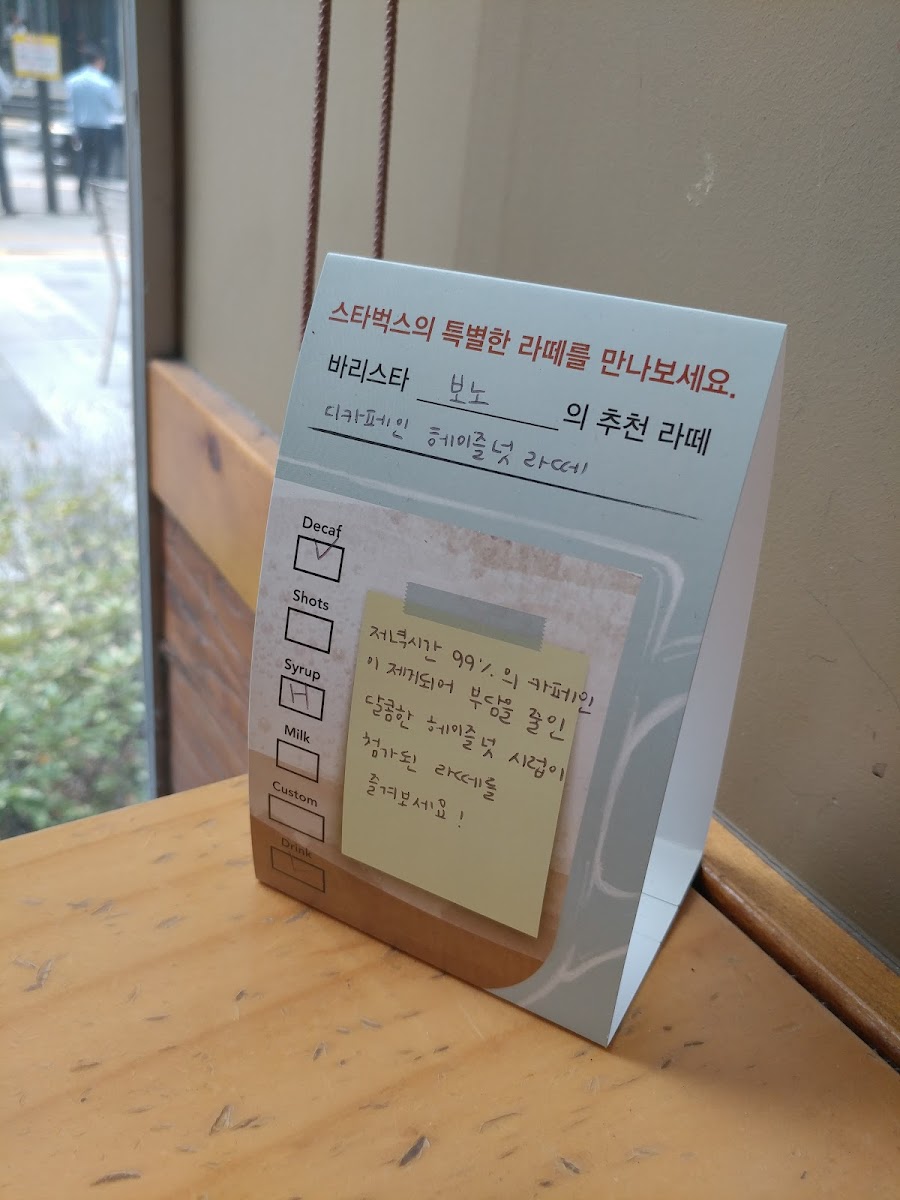 스타벅스의 특별한 라떼를 만나보세요.
바리스타 보노 의 추천 라떼
디카페인 헤이즐넛 라떼
Decaf
Shots
Syrup
H
Milk
Custom
Drink
L
저녁시간 99%의 카페인
이 제거되어 부담을 줄인
달콤한 헤이즐넛 시럽이
첨가된 라떼를
즐겨보세요!